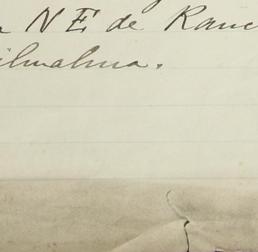 NE de Ranc
ilmalma.